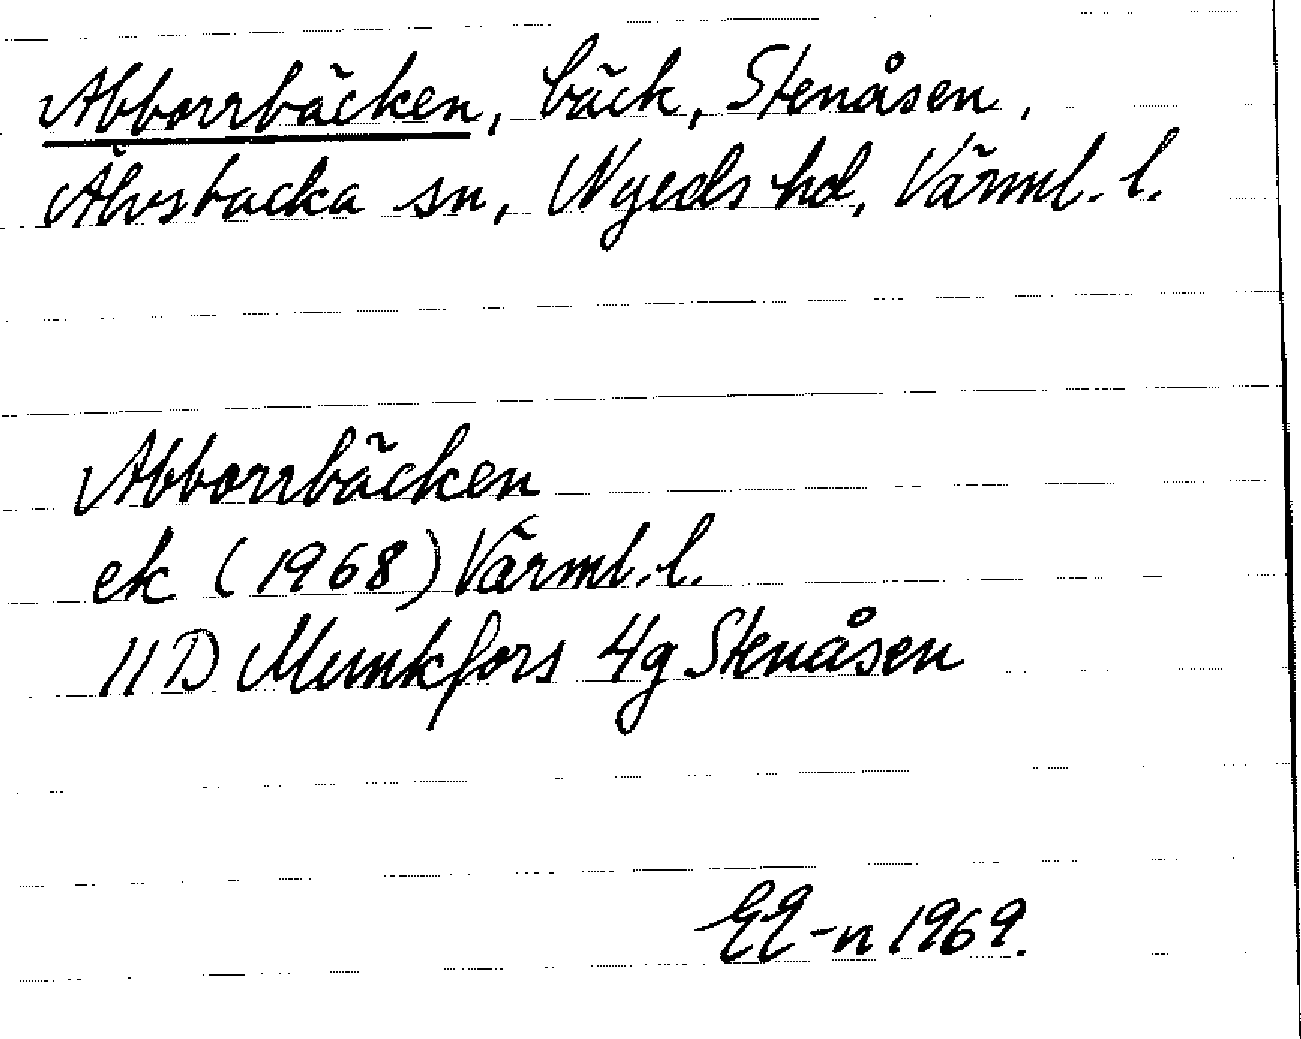 Abborrbäcken, bäck, Stenåsen,
Älvsbacka sn, Nyeds hd, Värml. l.
Abborrbäcken
ek (1968) Värml. l.
11D Munkfors 4g Stenåsen
1969.